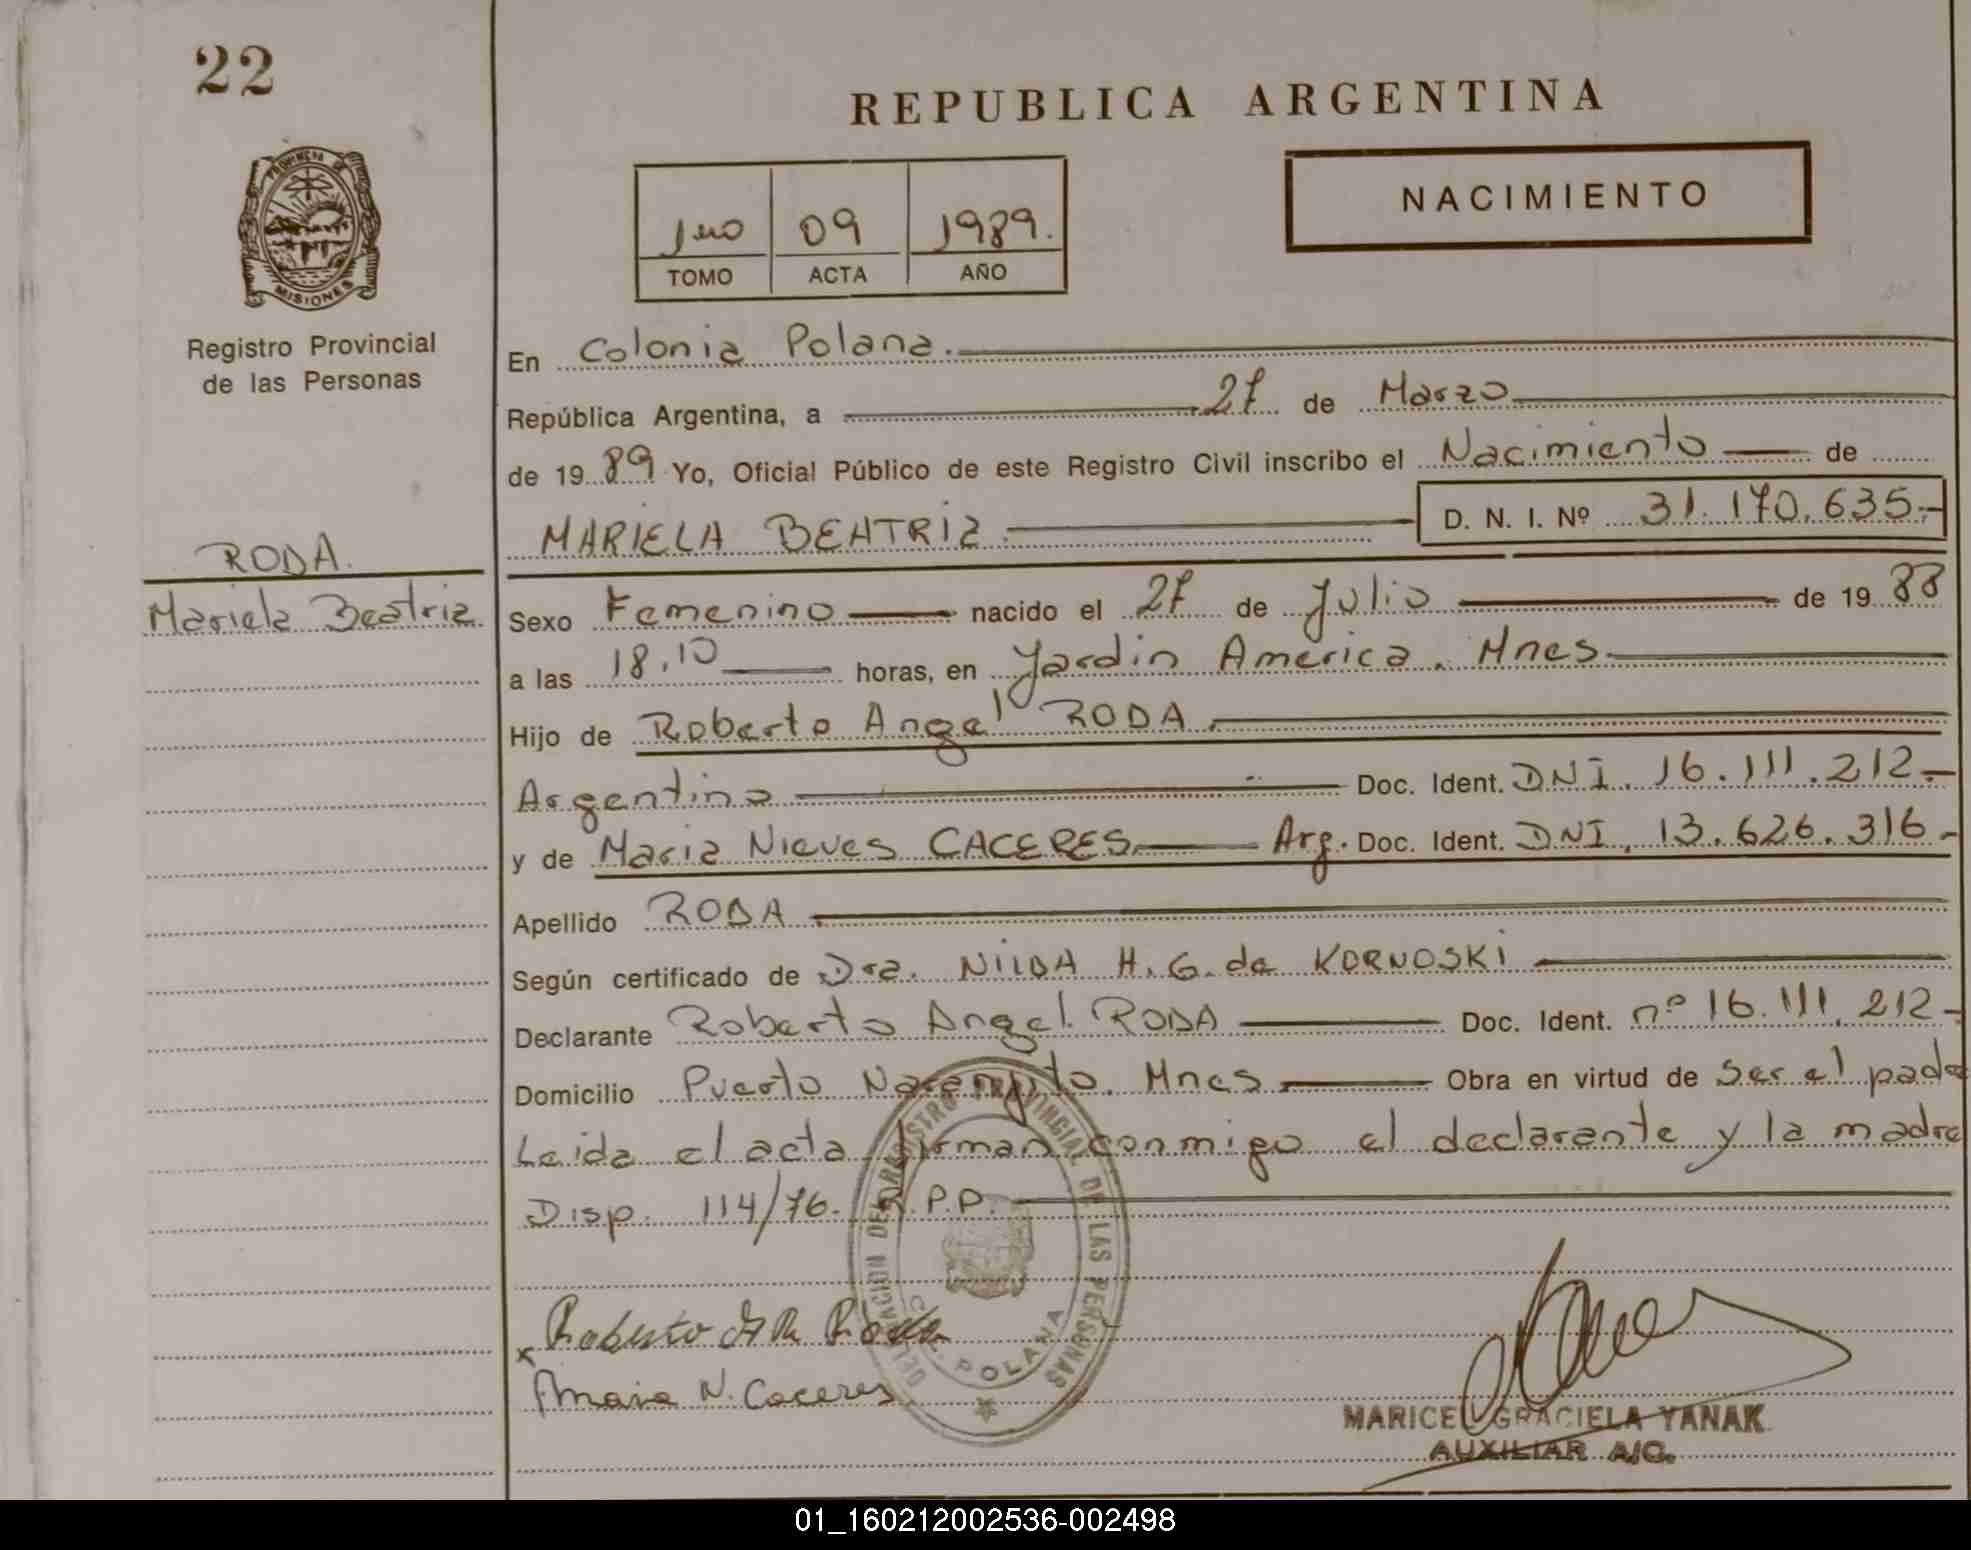 22
REPUBLICA ARGENTINA
PROVINCIA DE
MISIONES
Registro Provincial
de las Personas
1ero 09 1989.
TOMO ACTA AÑO
NACIMIENTO
En Colonia Polana.
República Argentina, a 27 de Marzo
de 1989 Yo, Oficial Público de este Registro Civil inscribo el Nacimiento de
MARIELA BEATRIZ D. N. I. Nº 31.170.635.-
RODA.
Mariela Beatriz
Sexo Femenino nacido el 27 de Julio de 1988
a las 18,10 horas, en Jardin America. Mnes.
Hijo de Roberto Angel RODA.
Argentino Doc. Ident. DNI. 16.111.212.-
y de Maria Nieves CACERES. Arg. Doc. Ident. DNI. 13.626.316.-
Apellido RODA
Según certificado de Dra. NILDA H. G. de KORNOSKI
Declarante Roberto Angel RODA Doc. Ident. nº 16.111.212-
Domicilio Puerto Naranjito. Mnes. Obra en virtud de Ser el padre
Leida el acta firman conmigo el declarante y la madre
Disp. 114/76. R.P.P.
DELEGACION DEL REGISTRO PROVINCIAL DE LAS PERSONAS
COL. POLANA
x Roberto Roda
Maria N. Caceres
MARICEL GRACIELA YANAK
AUXILIAR A/C.
01_160212002536-002498